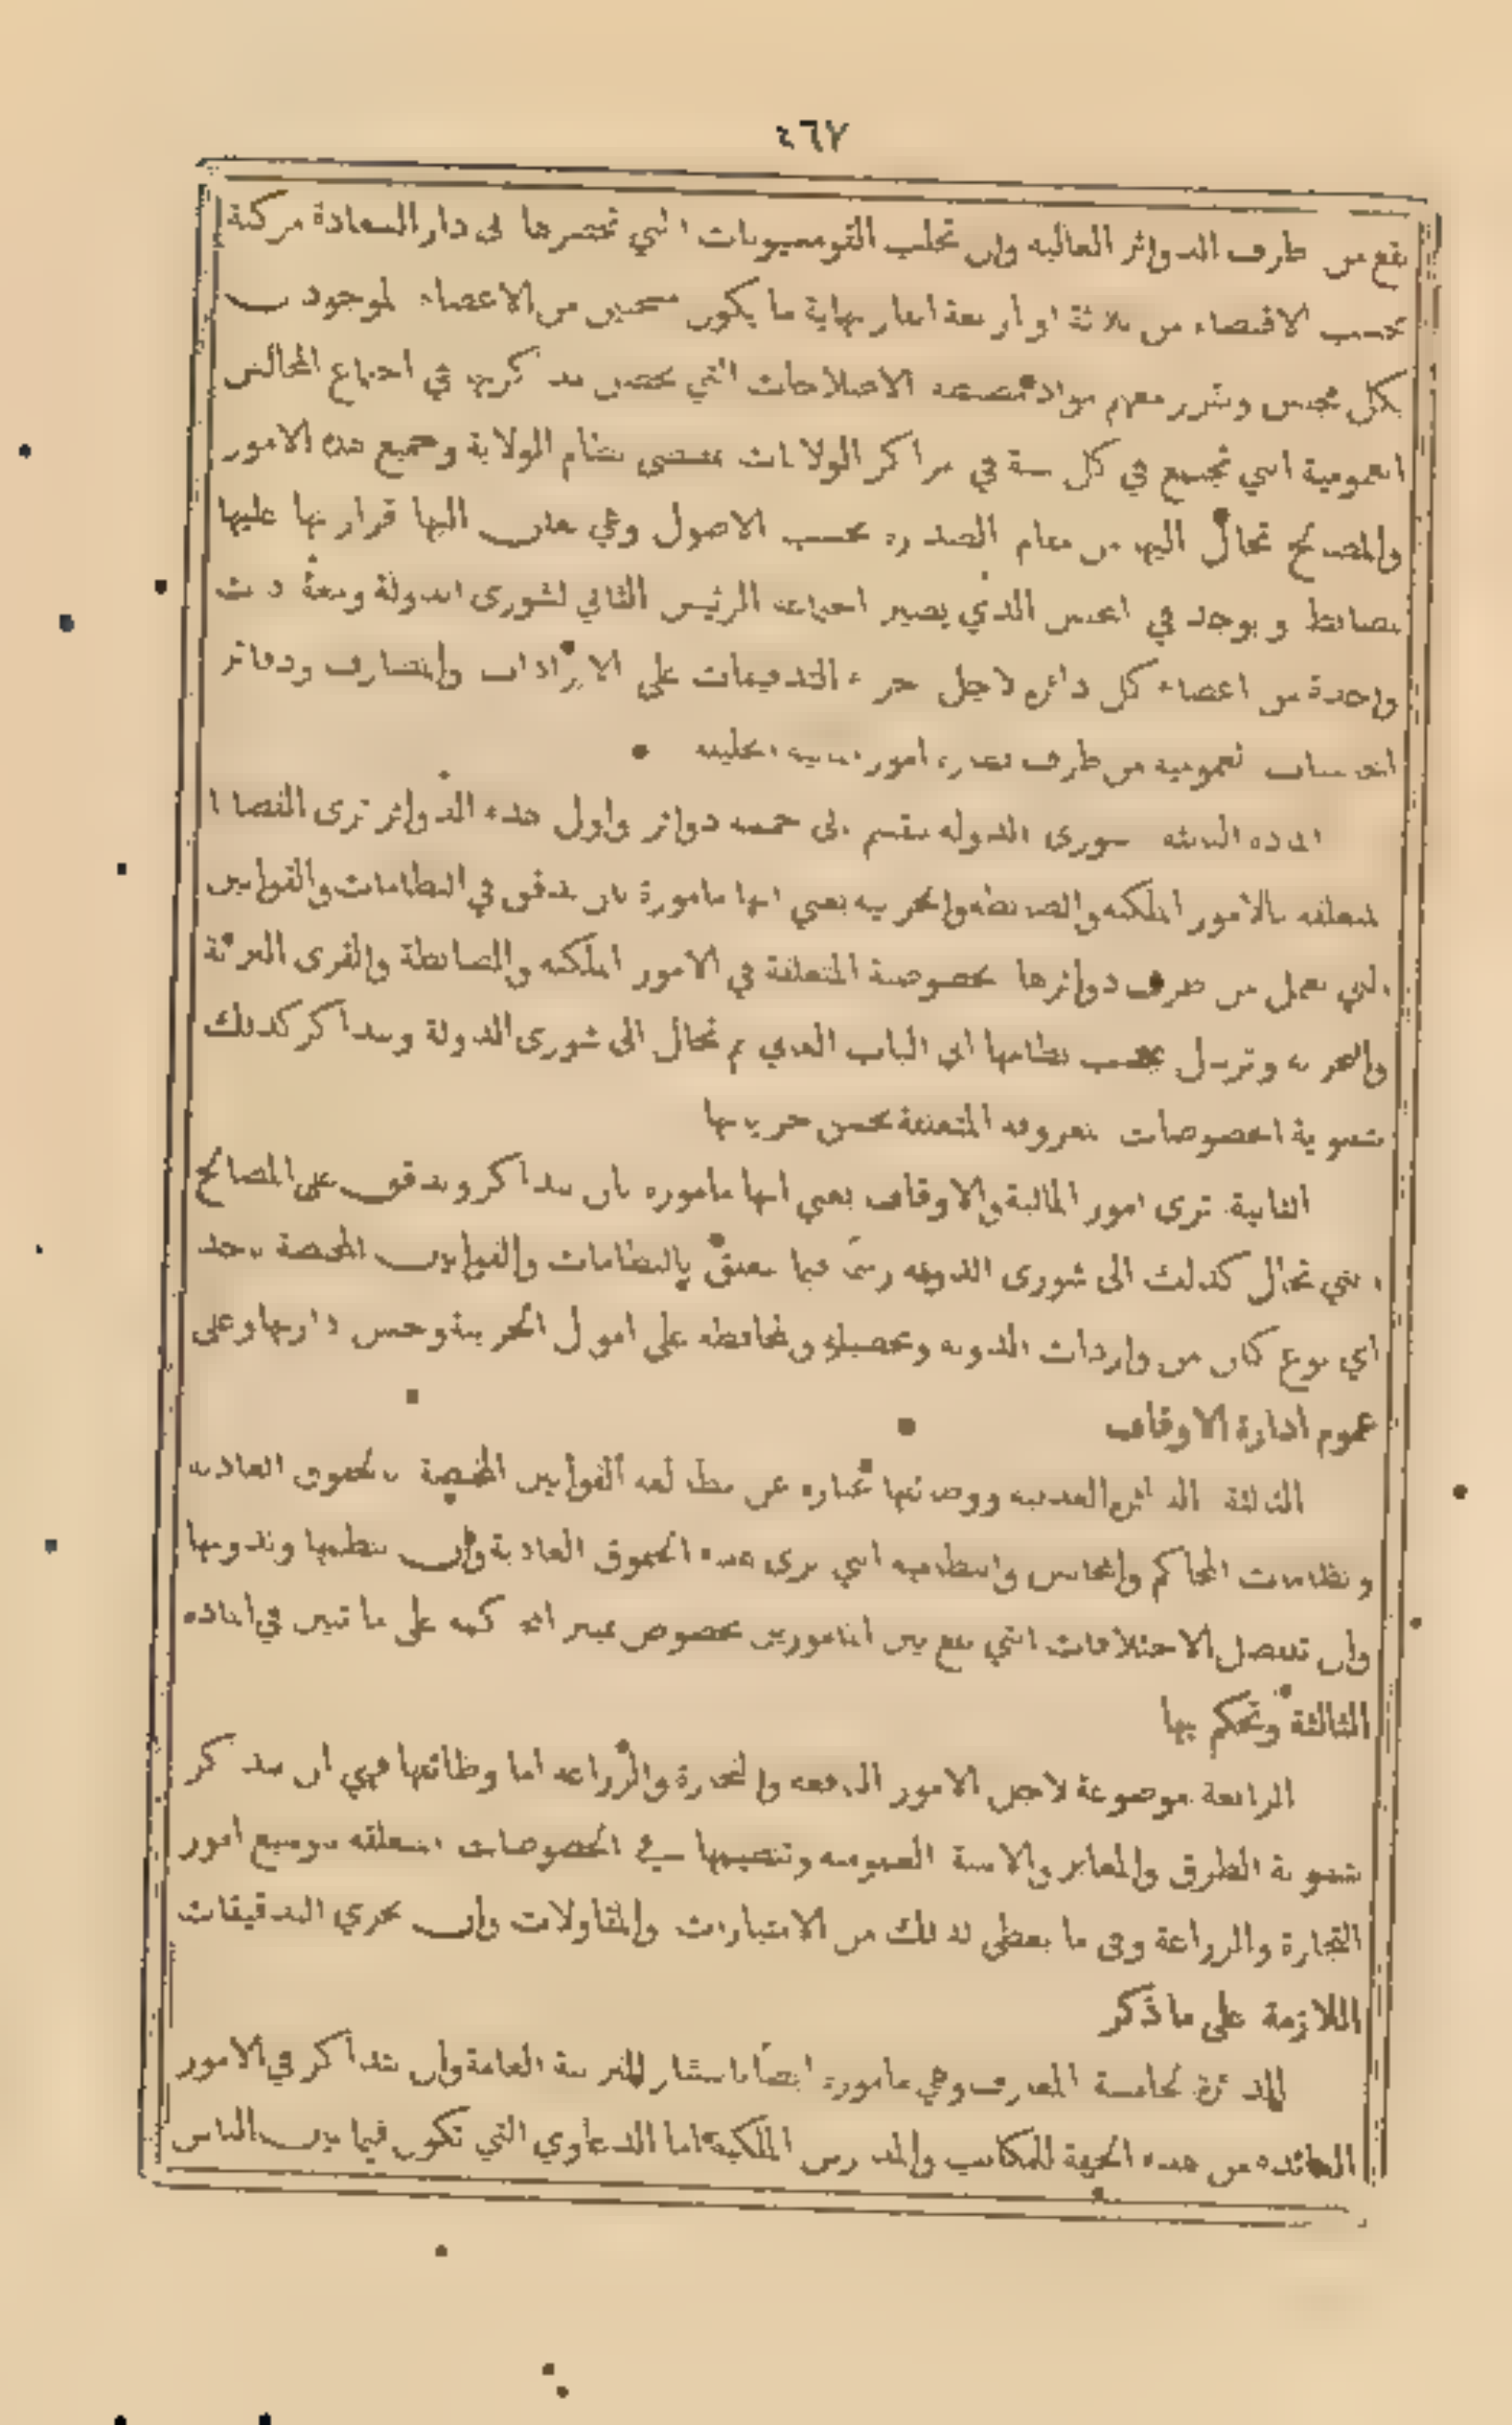 ٤٦٧
تقع من طرف الدوائر العالية وان تجلب القومسيونات التي تحضرها الى دار السعادة مركبة
بحسب الاقتضاء من ثلاثة او اربعة انفار نهاية ما يكون منتخبين من الاعضاء الموجودين
بكل مجلس وتقرر معهم مواد الاصلاحات التي تحصل مذاكرتها في اجتماع المجالس
العمومية التي تجتمع في كل سنة في مراكز الولايات بمقتضى نظام الولاية وجميع هذه الامور
والمصالح تحال اليها من مقام الصدارة بحسب الاصول وهي تعلن اليها قراراتها عليها
بمضابط ويوجد في المجلس الذي يصير اجتماعه الرئيس الثاني لشورى الدولة ومعه ذات
واحدة من اعضاء كل دائرة لاجل اجراء التدقيقات على الايرادات والمصارف ودفاتر
المحاسبات العمومية من طرف نظارة امور المالية الجليلة
المادة الثالثة شورى الدولة منقسم الى خمسة دوائر واول هذه الدوائر ترى القضايا
المتعلقة بالامور الملكية والضابطة والحربية يعني انها مامورة بان تدقق في النظامات والقوانين
التي تعمل من طرف دوائرها بخصوصية المتعلقة في الامور الملكية والضابطة والقرى العرية
والبحرية وترسل بحسب نظامها الى الباب العالي ثم تحال الى شورى الدولة وتتذاكر كذلك
بتسوية الخصوصات المعروفة المتعلقة بحسن جرياتها
الثانية ترى امور المالية والاوقاف يعني انها مامورة بان تتذاكر وتدقق على المصالح
التي تحال كذلك الى شورى الدولة رسما فيما يتعلق بالنظامات والقوانين المختصة باخذ
اي نوع كان من واردات الدولة وتحصيله ومحافظة على اموال الخزينة وحسن ادارتها وعلى
عموم ادارة الاوقاف
الثالثة الدائرة العدلية ووصائفها عبارة عن مطالعة القوانين المختصة بالحقوق العادية
ونظامات المحاكم والمجالس والنظامية التي ترى هذه الحقوق العادية وان تنظمها وتدومها
وان تفصل الاختلافات التي تقع بين المامورين بخصوص تمييز المحاكمة على ما تبين في المادة
الثالثة وتحكم بها
الرابعة موضوعة لاجل الامور النافعة والتجارة والزراعة اما وظائفها فهي ان تتذاكر
بتسوية الطرق والمعابر والابنية العمومية وتنظيمها في الخصوصات المتعلقة بتوسيع امور
التجارة والزراعة وفي ما يعطى لذلك من الامتيازات والمقاولات وان تجري التدقيقات
اللازمة على ما ذكر
الدائرة الخامسة المعارف وهي مامورة ايضا بانتشار التربية العامة وان تتذاكر في الامور
العائدة من هذه الجهة للمكاتب والمدارس الملكية اما الدعاوي التي تكون فيما بين الناس